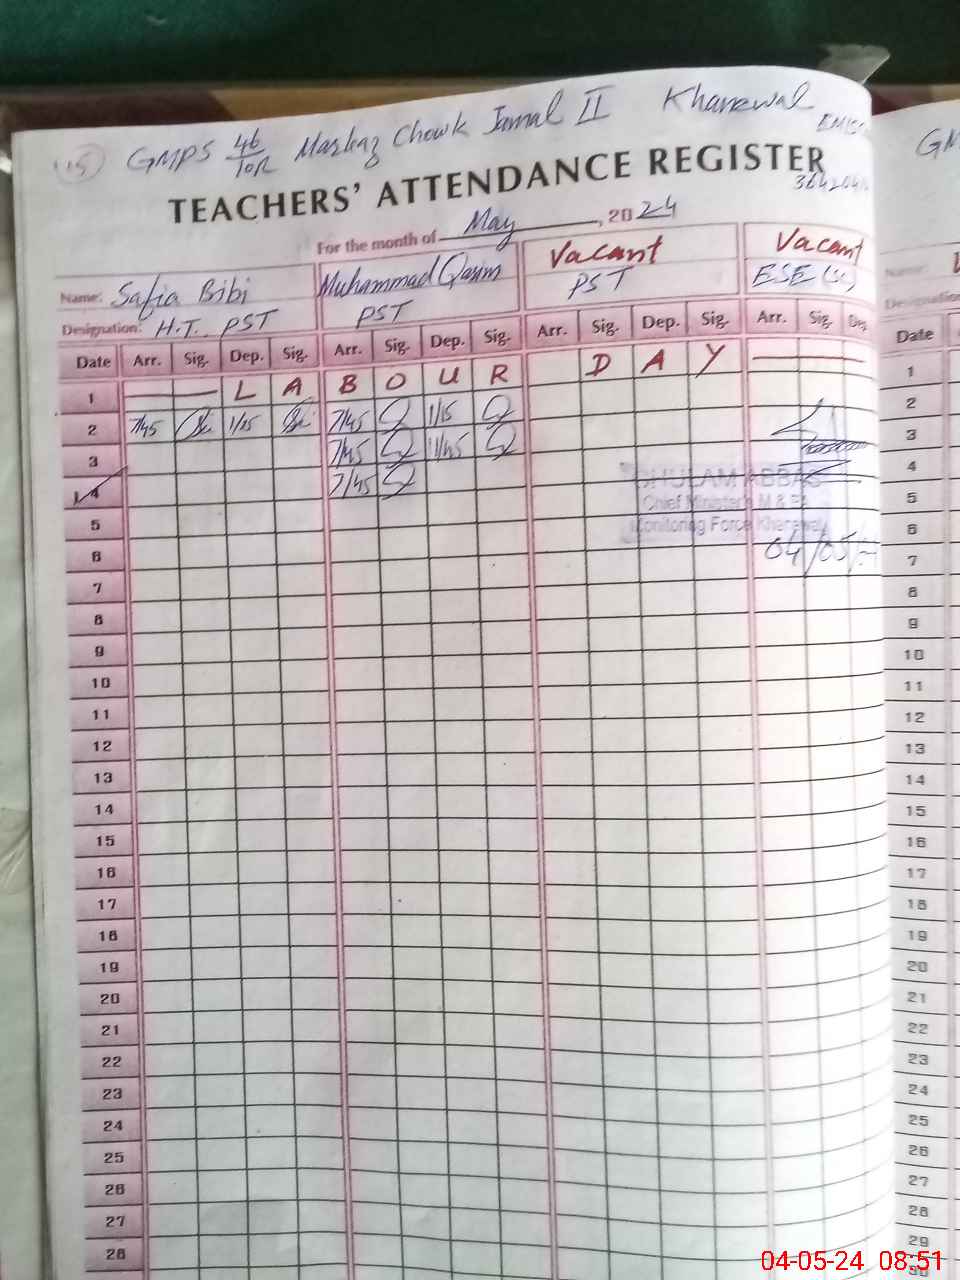 15 GMPS 46/10R Markaz Chowk Jamal II Khanewal
EMIS
TEACHERS' ATTENDANCE REGISTER
For the month of May, 2024
Name: Safia Bibi Muhammad Qasim Vacant Vacant
Designation: H.T. PST PST PST ESE
Date Arr. Sig. Dep. Sig. Arr. Sig. Dep. Sig. Arr. Sig. Dep. Sig. Arr. Sig. Dep.
1 L A B O U R D A Y
2 7/45 1/15 7/45 1/15
3 7/45 11/45
4 7/45
GHULAM ABBAS
Chief Minister's M & E
Monitoring Force Khanewal
04/05/
5
6
7
8
9
10
11
12
13
14
15
16
17
18
19
20
21
22
23
24
25
26
27
28
GM
Name:
Designation
Date
1
2
3
4
5
6
7
8
9
10
11
12
13
14
15
16
17
18
19
20
21
22
23
24
25
26
27
28
29
30
04-05-24 08:51